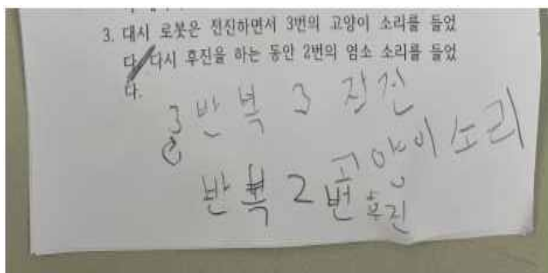 3. 대시 로봇은 전진하면서 3번의 고양이 소리를 들었
다. 다시 후진을 하는 동안 2번의 염소 소리를 들었
다.
3 반복 3 전진
고양이 소리
반복 2번 후진